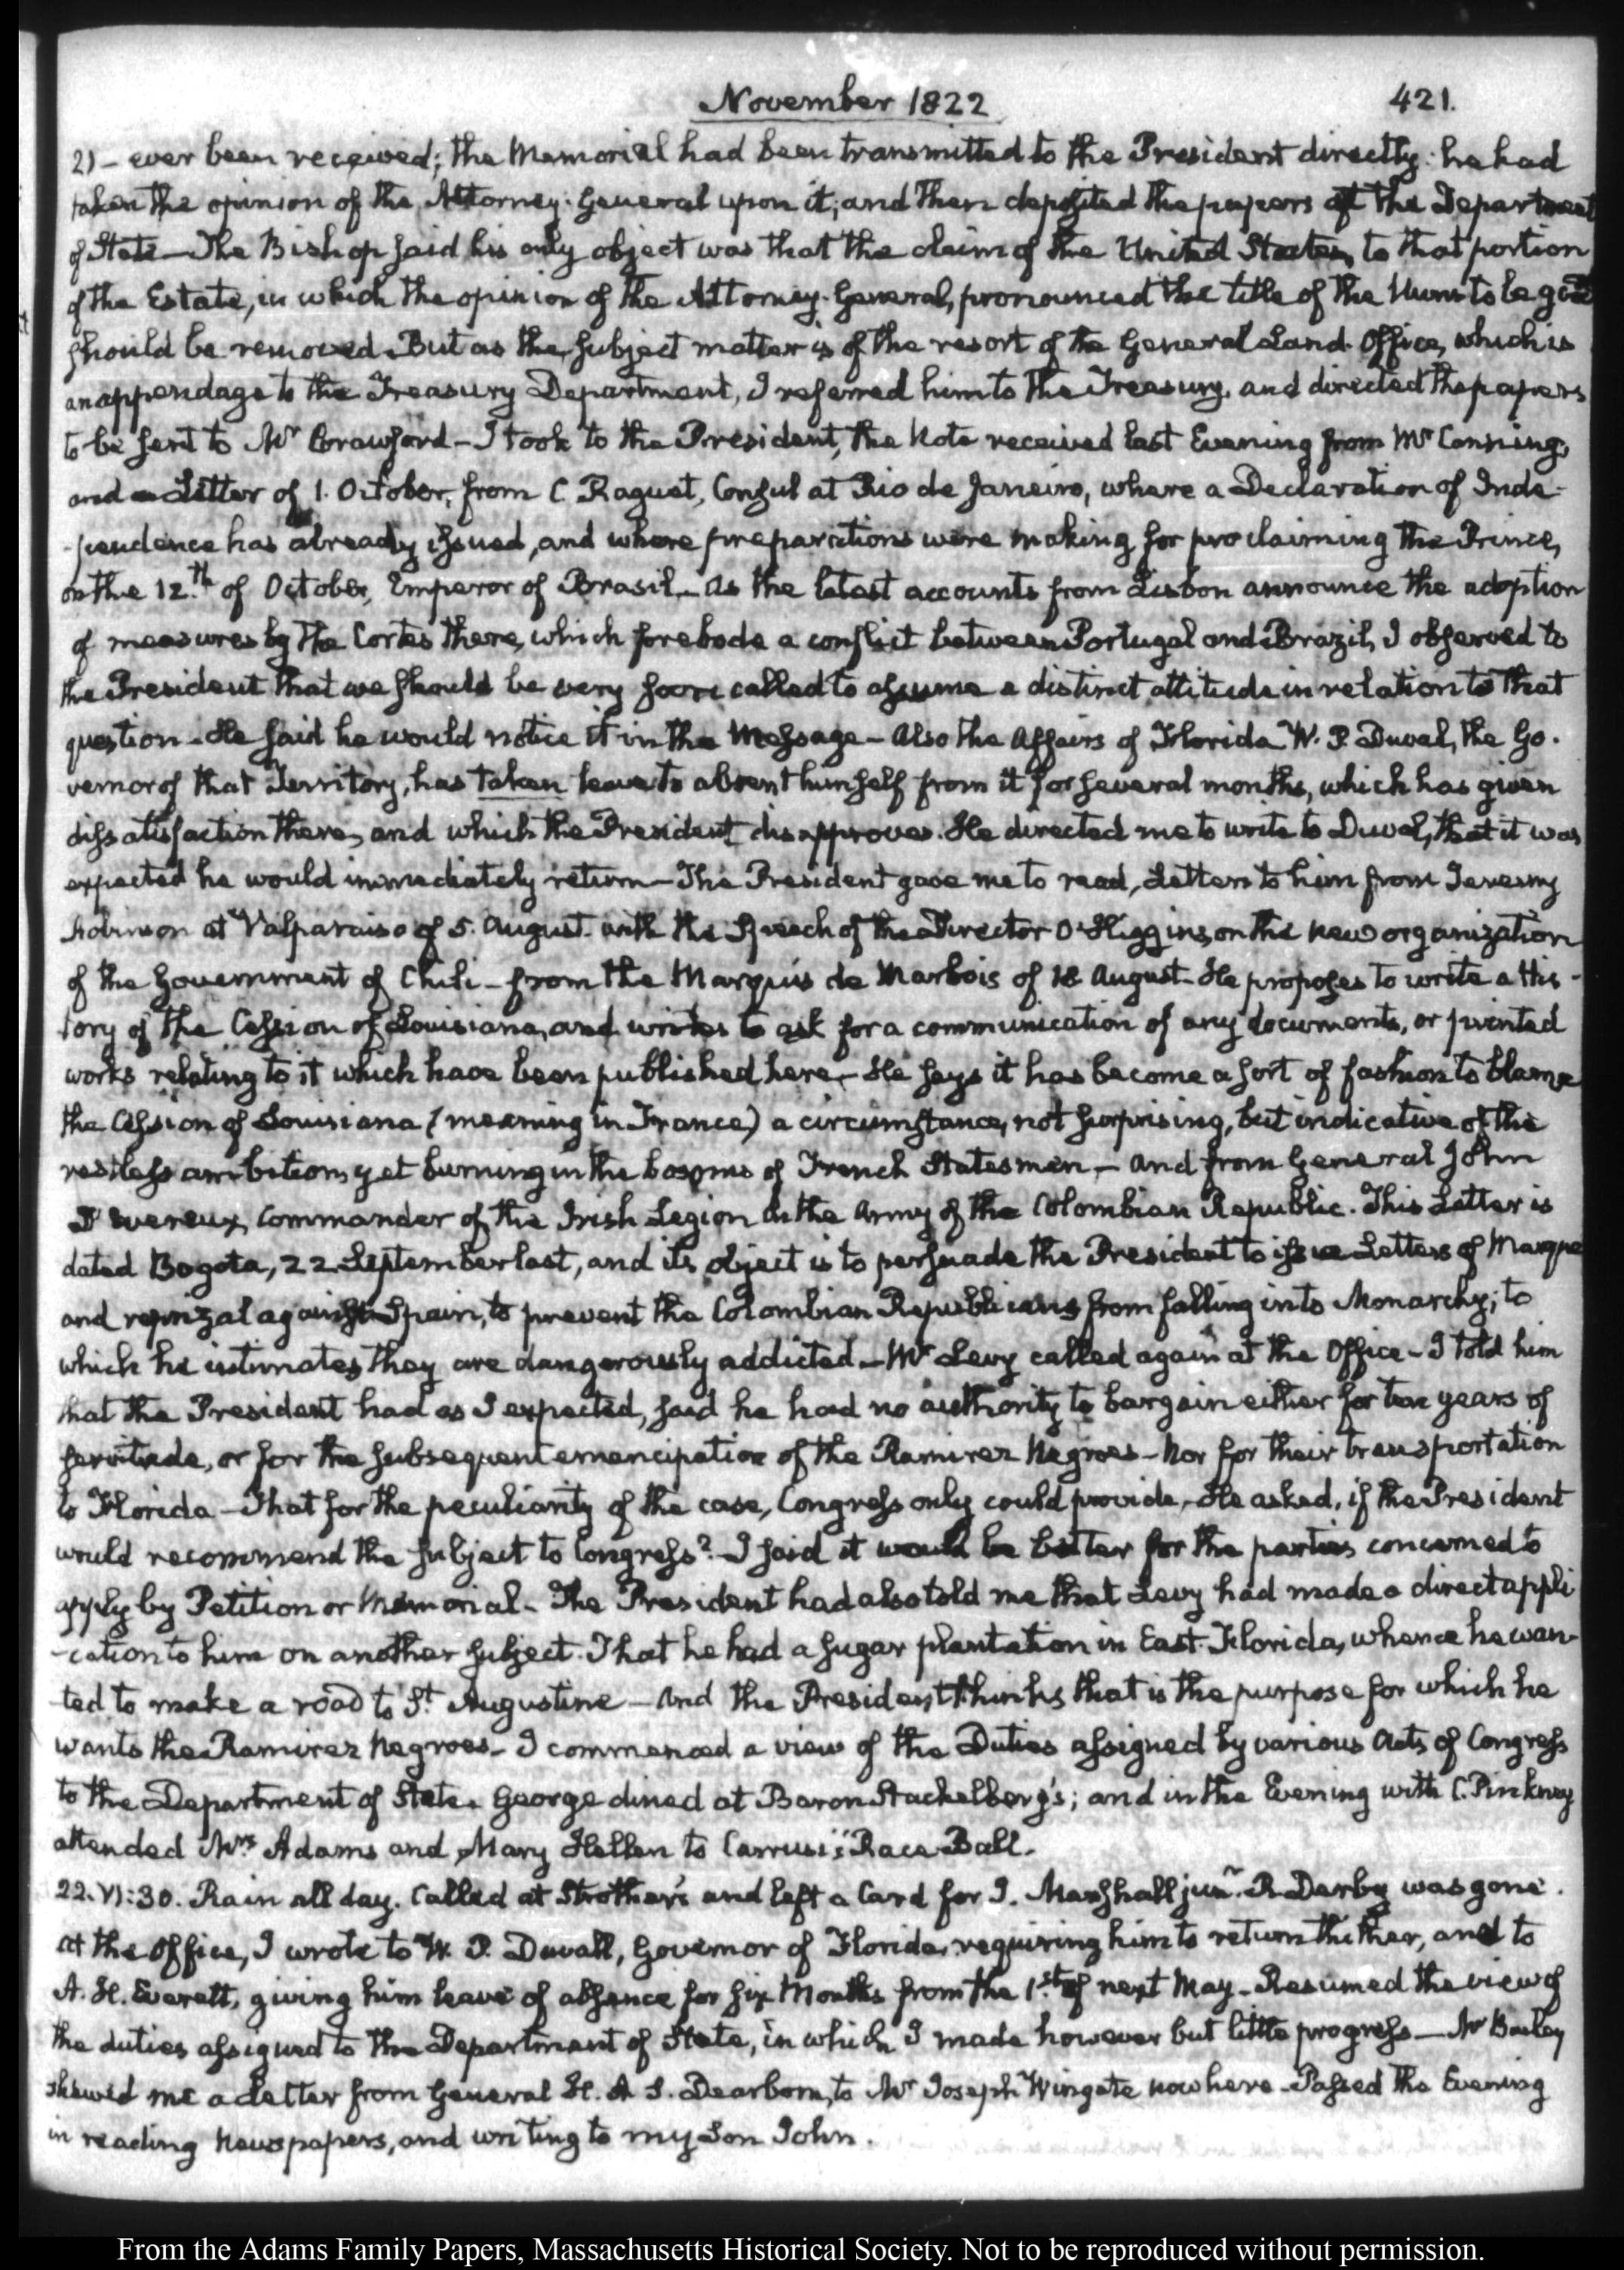 November 1822
421.
21 - ever been received; the Memorial had been transmitted to the President directly: he had
taken the opinion of the Attorney-General upon it; and then deposited the papers at the Department
of State - The Bishop said his only object was that the claim of the United States, to that portion
of the Estate, in which the opinion of the Attorney-General, pronounced the title of the Nuns to be good
should be removed. But as the subject matter is of the resort of the General Land-Office, which is
an appendage to the Treasury Department, I referred him to the Treasury, and directed the papers
to be sent to Mr Crawford - I took to the President, the Note received last Evening from Mr Canning,
and a Letter of 1. October, from C Raguet, Consul at Rio de Janeiro, where a Declaration of Inde-
-pendence has already issued, and where preparations were making for proclaiming the Prince,
on the 12.th of October, Emperor of Brasil - As the latest accounts from Lisbon announce the adoption
of measures by the Cortes there, which forebode a conflict between Portugal and Brazil, I observed to
the President that we should be very soon called to assume a distinct attitude in relation to that
question - He said he would notice it in the Message - Also the Affairs of Florida W. P. Duval, the Go-
vernor of that Territory, has taken leave to absent himself from it for several months, which has given
dissatisfaction there, and which the President disapproves. He directed me to write to Duval, that it was
expected he would immediately return - The President gave me to read, Letters to him from Jeremy
Robinson at Valparaiso of 5. August with the Speech of the Director O'Higgins, on the new organization
of the Government of Chili - from the Marquis de Marbois of 18 August - He proposes to write a His-
tory of the Cession of Louisiana, and writes to ask for a communication of any documents, or printed
works relating to it which have been published here - He says it has become a sort of fashion to blame
the Cession of Louisiana (meaning in France) a circumstance, not surprising, but indicative of the
restless ambition, yet burning in the bosoms of French Statesmen - and from General John
D'Evereux, Commander of the Irish Legion in the Army of the Colombian Republic. This Letter is
dated Bogota, 22 September last, and its object is to persuade the President to issue Letters of Marque
and reprizal against Spain, to prevent the Colombian Republicans from falling into Monarchy; to
which he intimates they are dangerously addicted - Mr Levy called again at the Office - I told him
that the President had as I expected, said he had no authority to bargain either for ten years of
servitude, or for the subsequent emancipation of the Ramirez Negroes - Nor for their transportation
to Florida - That for the peculiarity of the case, Congress only could provide - He asked, if the President
would recommend the subject to Congress? - I said it would be better for the parties concerned to
apply by Petition or Memorial - The President had also told me that Levy had made a direct appli
-cation to him on another subject. That he had a sugar plantation in East-Florida, whence he wan-
ted to make a road to St Augustine - and the President thinks that is the purpose for which he
wants the Ramirez Negroes - I commenced a view of the Duties assigned by various Acts of Congress
to the Department of State. George dined at Baron Stackelberg's; and in the Evening with C. Pinkney
attended Mrs Adams and Mary Hellen to Carrusi's Race Ball.
22. VI:30. Rain all day. Called at Strother's and left a Card for J. Marshall junr. R Darby was gone.
At the Office, I wrote to W. P. Duvall, Governor of Florida, requiring him to return thither, and to
A. H. Everett, giving him leave of absence for six Months from the 1.st of next May - Resumed the view of
the duties assigned to the Department of State, in which I made however but little progress - Mr Bailey
shewed me a Letter from General H. A S. Dearborn, to Mr Joseph Wingate now here - Passed the Evening
in reading Newspapers, and writing to my Son John.
From the Adams Family Papers, Massachusetts Historical Society. Not to be reproduced without permission.